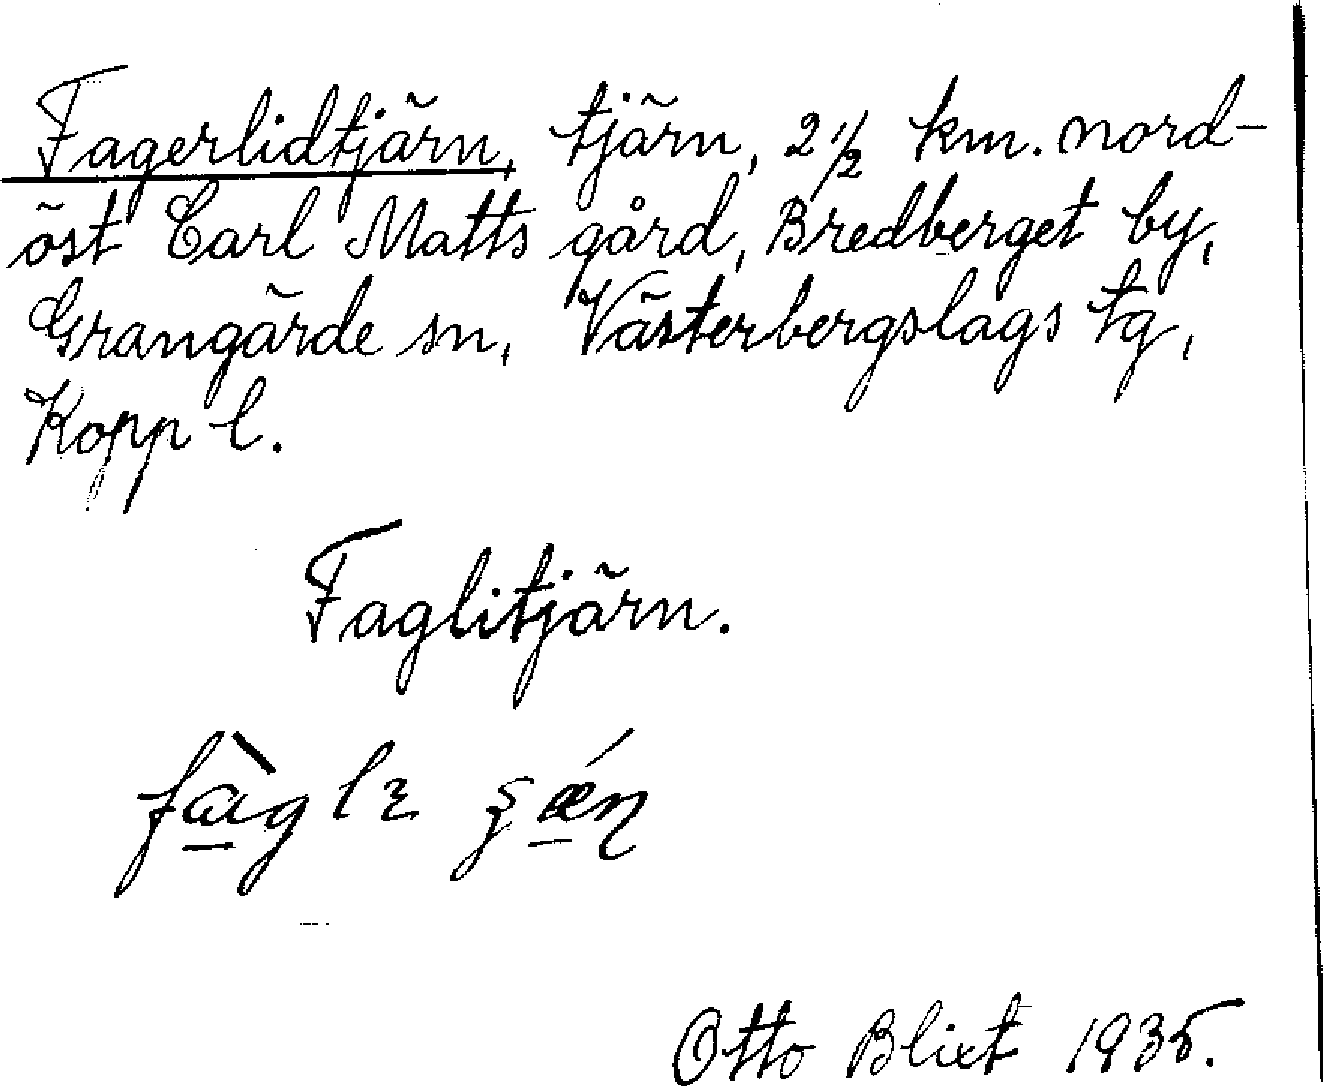 Fagerlidtjärn, tjärn, 2 1/2 km. nord-
öst Carl Matts gård, Bredberget by,
Grangärde sn, Västerbergslags tg,
Kopp l.
Faglitjärn.
Otto Blixt 1935.